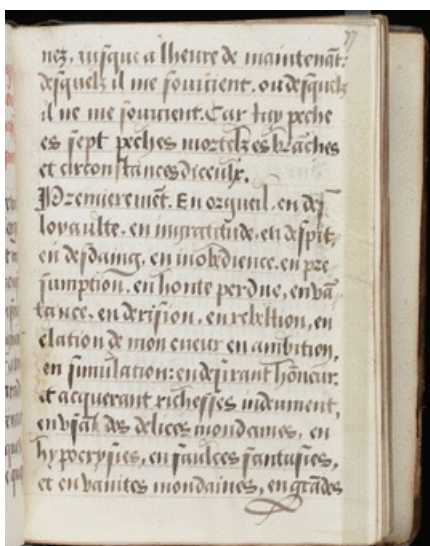 77
nez, jusque a lheure de maintenāt:
desquelz il me souvient. ou desquelz
il ne me souvient. Car iay peche
es sept peches mortelz es brāches
et circonstances diceulx.
Premieremēt. En orgueil. en desloyaulte. en ingratitude. en despit,
en desdaing, en inobedience. en pre
sumption. en honte perdue, en vā
tance. en derision. en rebellion, en
elation de mon cueur en ambition,
en simulation: en desirant hōneur.
et acquerant richesses induement,
en usāt des delices mondaines, en
hypocrysies, en faulces fantasies,
et en vanites mondaines, en grādes